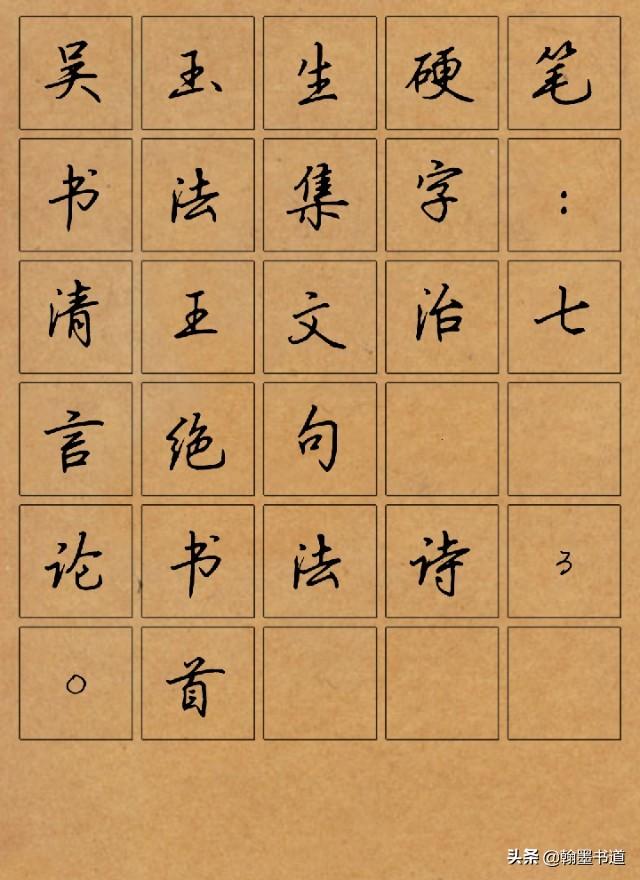 吴玉生硬笔
书法集字:
清王文治七
言绝句
论书法诗3
0首
头条 @翰墨书道